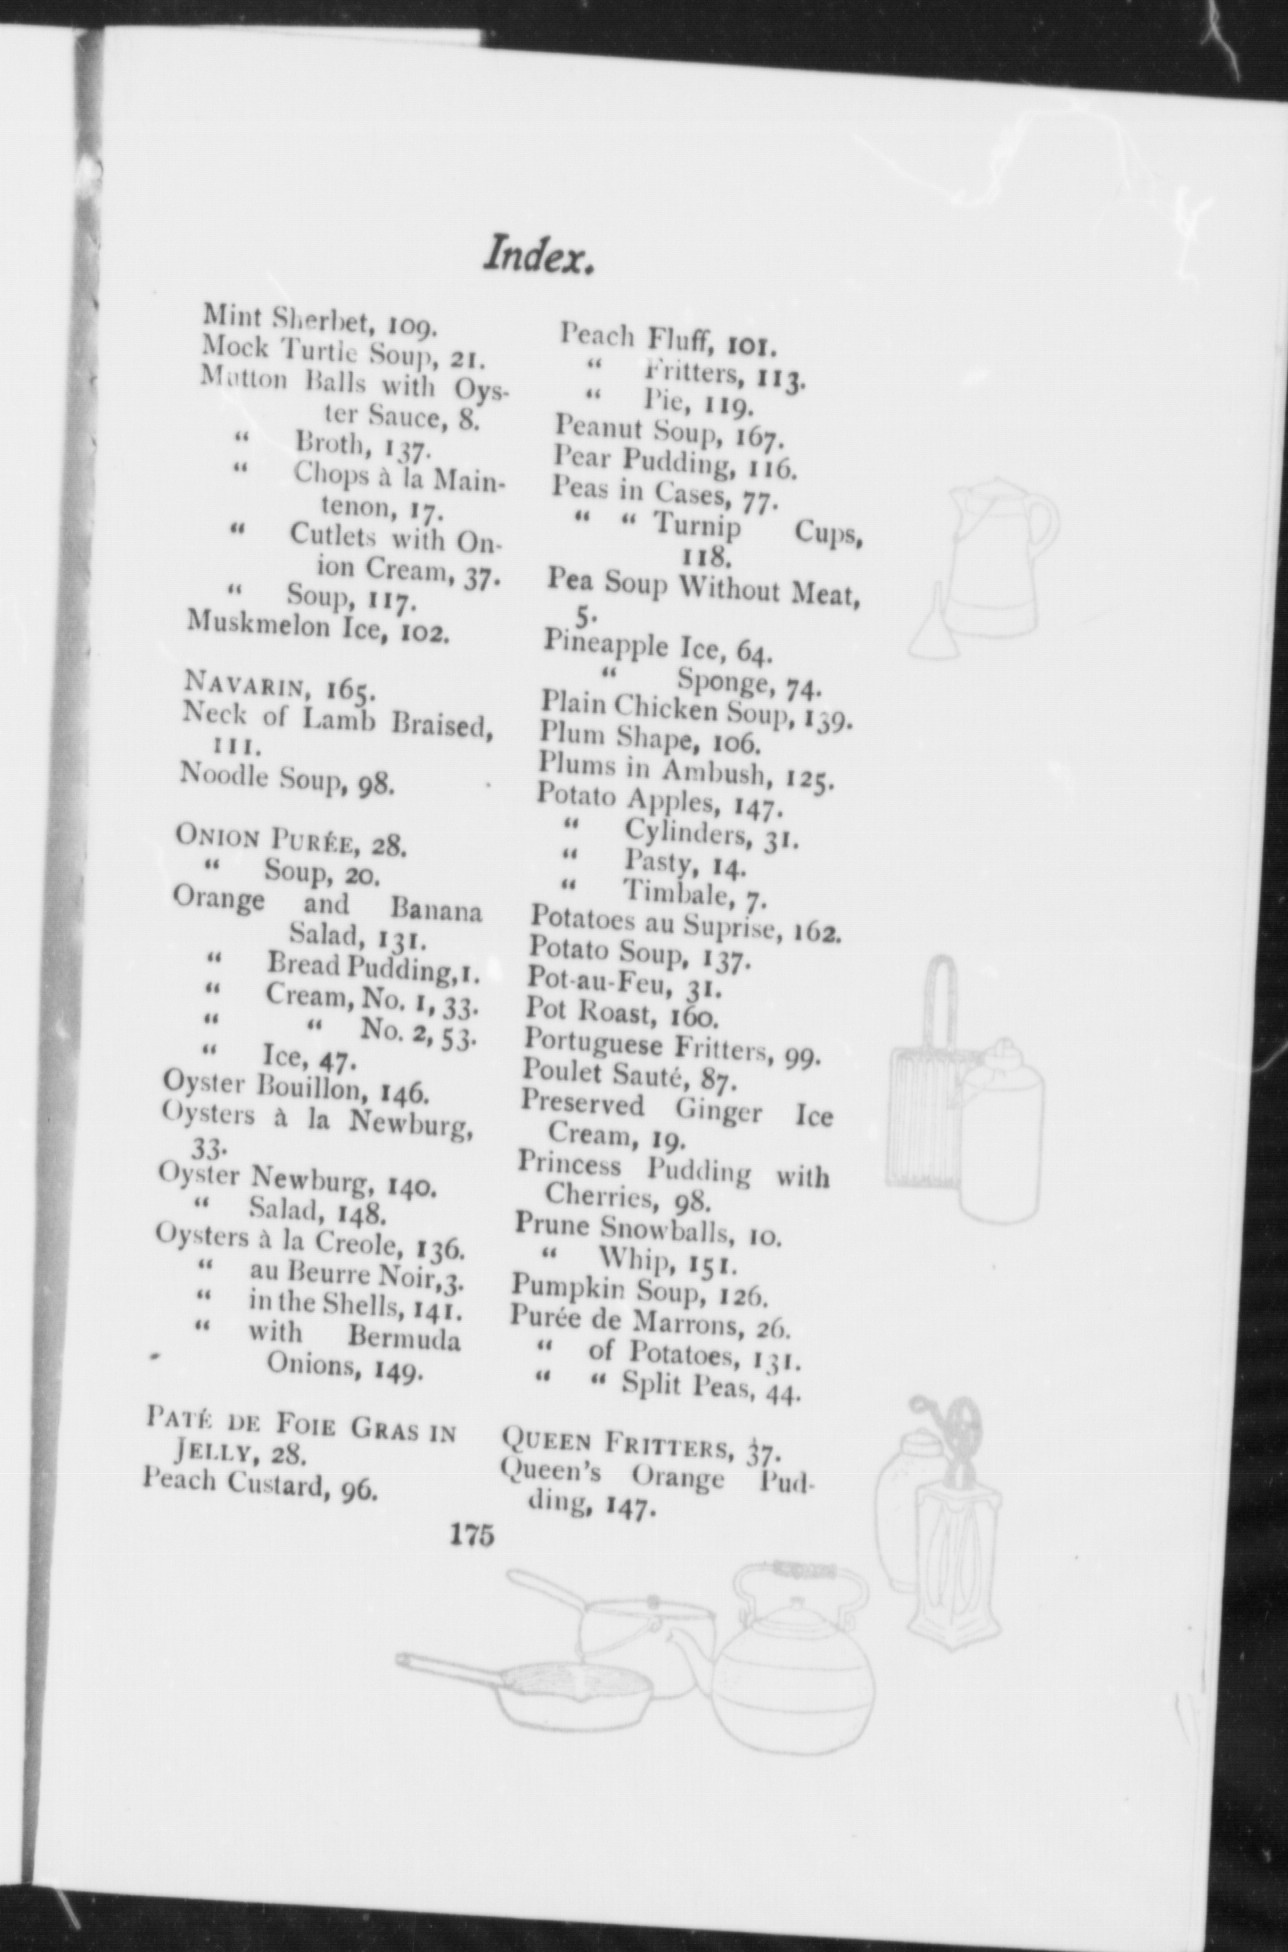 Index.
Mint Sherbet, 109.
Mock Turtle Soup, 21.
Mutton Balls with Oys-
ter Sauce, 8.
“ Broth, 137.
“ Chops à la Main-
tenon, 17.
“ Cutlets with On-
ion Cream, 37.
“ Soup, 117.
Muskmelon Ice, 102.
NAVARIN, 165.
Neck of Lamb Braised,
111.
Noodle Soup, 98.
ONION PURÉE, 28.
“ Soup, 20.
Orange and Banana
Salad, 131.
“ Bread Pudding, 1.
“ Cream, No. 1, 33.
“ “ No. 2, 53.
“ Ice, 47.
Oyster Bouillon, 146.
Oysters à la Newburg,
33.
Oyster Newburg, 140.
“ Salad, 148.
Oysters à la Creole, 136.
“ au Beurre Noir, 3.
“ in the Shells, 141.
“ with Bermuda
Onions, 149.
PATÉ DE FOIE GRAS IN
JELLY, 28.
Peach Custard, 96.
Peach Fluff, 101.
“ Fritters, 113.
“ Pie, 119.
Peanut Soup, 167.
Pear Pudding, 116.
Peas in Cases, 77.
“ “ Turnip Cups,
118.
Pea Soup Without Meat,
5.
Pineapple Ice, 64.
“ Sponge, 74.
Plain Chicken Soup, 139.
Plum Shape, 106.
Plums in Ambush, 125.
Potato Apples, 147.
“ Cylinders, 31.
“ Pasty, 14.
“ Timbale, 7.
Potatoes au Suprise, 162.
Potato Soup, 137.
Pot-au-Feu, 31.
Pot Roast, 160.
Portuguese Fritters, 99.
Poulet Sauté, 87.
Preserved Ginger Ice
Cream, 19.
Princess Pudding with
Cherries, 98.
Prune Snowballs, 10.
“ Whip, 151.
Pumpkin Soup, 126.
Purée de Marrons, 26.
“ of Potatoes, 131.
“ “ Split Peas, 44.
QUEEN FRITTERS, 37.
Queen's Orange Pud-
ding, 147.
175